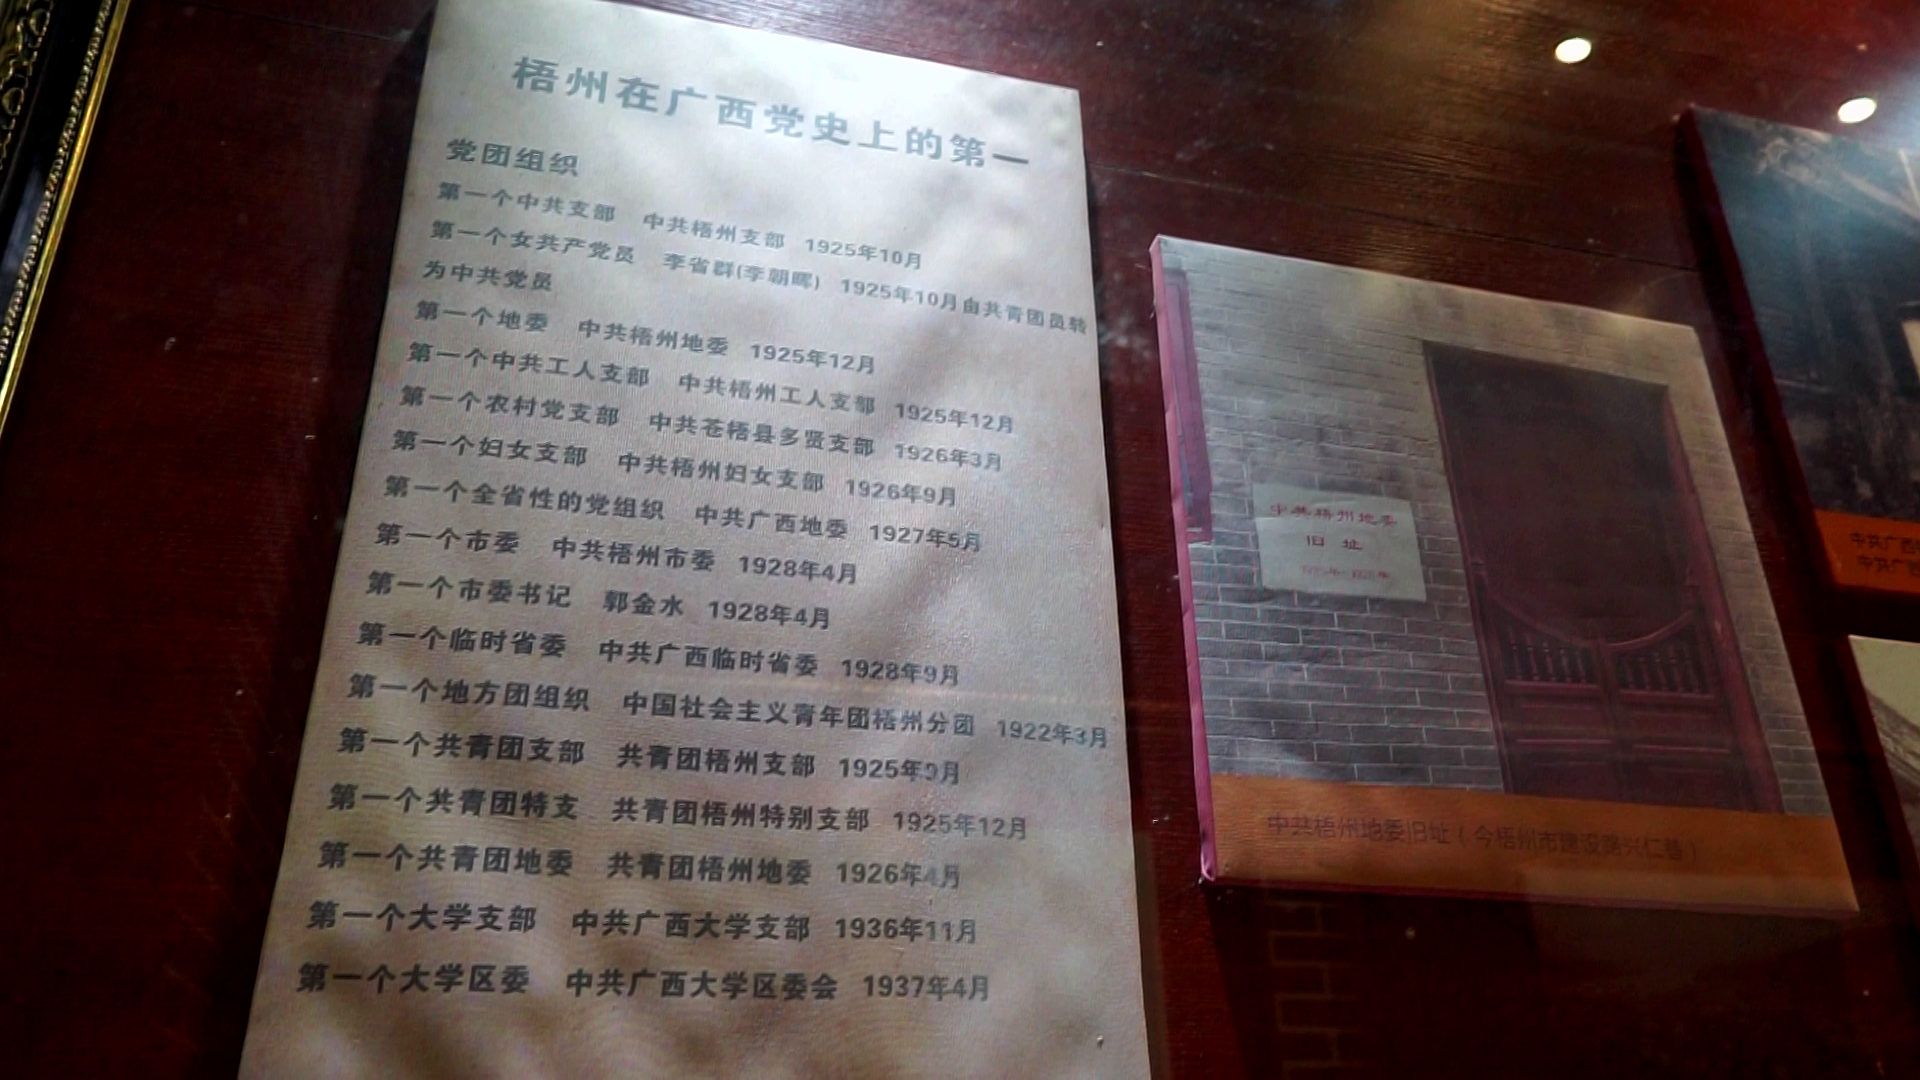 梧州在广西党史上的第一
党团组织
第一个中共支部 中共梧州支部 1925年10月
第一个女共产党员 李省群(李朝晖) 1925年10月由共青团员转
为中共党员
第一个地委 中共梧州地委 1925年12月
第一个中共工人支部 中共梧州工人支部 1925年12月
第一个农村党支部 中共苍梧县多贤支部 1926年3月
第一个妇女支部 中共梧州妇女支部 1926年9月
第一个全省性的党组织 中共广西地委 1927年5月
第一个市委 中共梧州市委 1928年4月
第一个市委书记 郭金水 1928年4月
第一个临时省委 中共广西临时省委 1928年9月
第一个地方团组织 中国社会主义青年团梧州分团 1922年3月
第一个共青团支部 共青团梧州支部 1925年9月
第一个共青团特支 共青团梧州特别支部 1925年12月
第一个共青团地委 共青团梧州地委 1926年4月
第一个大学支部 中共广西大学支部 1936年11月
第一个大学区委 中共广西大学区委会 1937年4月
中共梧州地委
旧址
中共梧州地委旧址（今梧州市建设路兴仁巷）
中共广西
中共广西